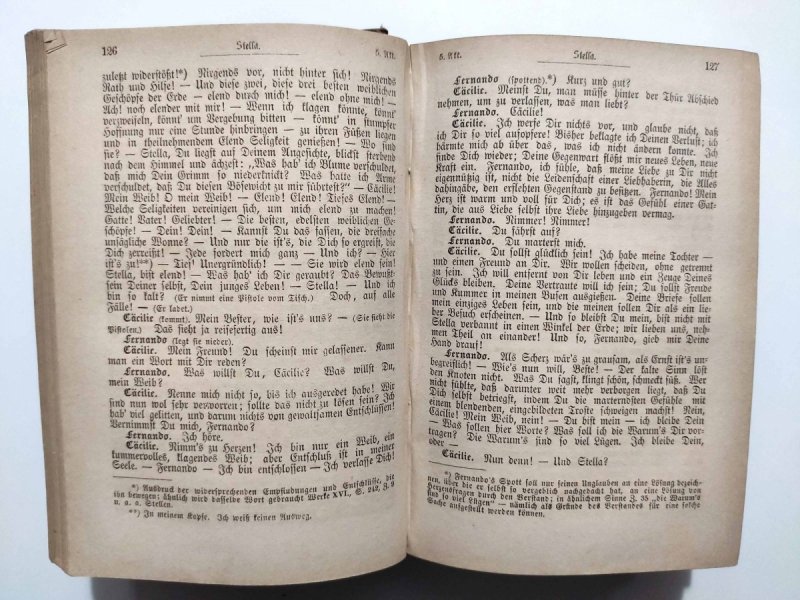 126 Stella. 5. Akt.
zuletzt widerstößt!*) Nirgends vor, nicht hinter sich! Nirgends
Rath und Hilfe! — Und diese zwei, diese drei besten weiblichen
Geschöpfe der Erde — elend durch mich! — elend ohne mich! —
Ach! noch elender mit mir! — Wenn ich klagen könnte, könnt'
verzweifeln, könnt' um Vergebung bitten — könnt' in stumpfer
Hoffnung nur eine Stunde hinbringen — zu ihren Füßen liegen
und in theilnehmendem Elend Seligkeit genießen! — Wo sind
sie? — Stella, Du liegst auf Deinem Angesichte, blickst sterbend
nach dem Himmel und ächzest: „Was hab' ich Blume verschuldet,
daß mich Dein Grimm so niederknickt? Was hatte ich Arme
verschuldet, daß Du diesen Bösewicht zu mir führtest?“ — Cäcilie!
Mein Weib! O mein Weib! — Elend! Elend! Tiefes Elend! —
Welche Seligkeiten vereinigen sich, um mich elend zu machen!
Gatte! Vater! Geliebter! — Die besten, edelsten weiblichen Ge-
schöpfe! — Dein! Dein! — Kannst Du das fassen, die dreifache
unsägliche Wonne? — Und nur die ist's, die Dich so ergreift, die
Dich zerreißt! — Jede fordert mich ganz — Und ich? — Hier
ist's zu!**) — Tief! Unergründlich! — Sie wird elend sein! —
Stella, bist elend! — Was hab' ich Dir geraubt? Das Bewußt-
sein Deiner selbst, Dein junges Leben! — Stella! — Und ich
bin so kalt? (Er nimmt eine Pistole vom Tisch.) Doch, auf alle
Fälle! — (Er ladet.)
Cäcilie (kommt). Mein Bester, wie ist's uns? — (Sie sieht die
Pistolen.) Das sieht ja reisefertig aus!
Fernando (legt sie nieder).
Cäcilie. Mein Freund! Du scheinst mir gelassener. Kann
man ein Wort mit Dir reden?
Fernando. Was willst Du, Cäcilie? Was willst Du,
mein Weib?
Cäcilie. Nenne mich nicht so, bis ich ausgeredet habe! Wir
sind nun wol sehr verworren; sollte das nicht zu lösen sein? Ich
hab' viel gelitten, und darum nichts von gewaltsamen Entschlüssen!
Vernimmst Du mich, Fernando?
Fernando. Ich höre.
Cäcilie. Nimm's zu Herzen! Ich bin nur ein Weib, ein
kummervolles, klagendes Weib; aber Entschluß ist in meiner
Seele. — Fernando — Ich bin entschlossen — Ich verlasse Dich!
*) Ausdruck der widersprechenden Empfindungen und Entschlüsse, die
ihn bewegen; ähnlich wird dasselbe Wort gebraucht Werke XVI., S. 242, Z. 9
u. a. a. Stellen.
**) In meinem Kopfe. Ich weiß keinen Ausweg.
5. Akt. Stella. 127
Fernando (spottend).*) Kurz und gut?
Cäcilie. Meinst Du, man müsse hinter der Thür Abschied
nehmen, um zu verlassen, was man liebt?
Fernando. Cäcilie!
Cäcilie. Ich werfe Dir nichts vor, und glaube nicht, daß
ich Dir so viel aufopfere! Bisher beklagte ich Deinen Verlust; ich
härmte mich ab über das, was ich nicht ändern konnte. Ich
finde Dich wieder; Deine Gegenwart flößt mir neues Leben, neue
Kraft ein. Fernando, ich fühle, daß meine Liebe zu Dir nicht
eigennützig ist, nicht die Leidenschaft einer Liebhaberin, die Alles
dahingäbe, den erflehten Gegenstand zu besitzen. Fernando! Mein
Herz ist warm und voll für Dich; es ist das Gefühl einer Gat-
tin, die aus Liebe selbst ihre Liebe hinzugeben vermag.
Fernando. Nimmer! Nimmer!
Cäcilie. Du fährst auf?
Fernando. Du marterst mich.
Cäcilie. Du sollst glücklich sein! Ich habe meine Tochter —
und einen Freund an Dir. Wir wollen scheiden, ohne getrennt
zu sein. Ich will entfernt von Dir leben und ein Zeuge Deines
Glücks bleiben. Deine Vertraute will ich sein; Du sollst Freude
und Kummer in meinen Busen ausgießen. Deine Briefe sollen
mein einziges Leben sein, und die meinen sollen Dir als ein lie-
ber Besuch erscheinen. — Und so bleibst Du mein, bist nicht mit
Stella verbannt in einen Winkel der Erde; wir lieben uns, neh-
men Theil an einander! Und so, Fernando, gieb mir Deine
Hand drauf!
Fernando. Als Scherz wär's zu grausam, als Ernst ist's un-
begreiflich! — Wie's nun will, Beste! — Der kalte Sinn löst
den Knoten nicht. Was Du sagst, klingt schön, schmeckt süß. Wer
nicht fühlte, daß darunter weit mehr verborgen liegt, daß Du
Dich selbst betriegst, indem Du die marterndsten Gefühle mit
einem blendenden, eingebildeten Troste schweigen machst! Nein,
Cäcilie! Mein Weib, nein! — Du bist mein — ich bleibe Dein.
— Was sollen hier Worte? Was soll ich die Warum's Dir vor-
tragen? Die Warum's sind so viel Lügen. Ich bleibe Dein,
oder —
Cäcilie. Nun denn! — Und Stella?
*) Fernando's Spott soll nur seinen Unglauben an eine Lösung bezeich-
nen, über die er selbst so vergeblich nachgedacht hat, an eine Lösung von
Herzensfragen durch den Verstand; in ähnlichem Sinne Z. 35 „die Warum's
sind so viel Lügen“ — nämlich als Gründe des Verstandes für eine solche
Sache aufgestellt werden können.